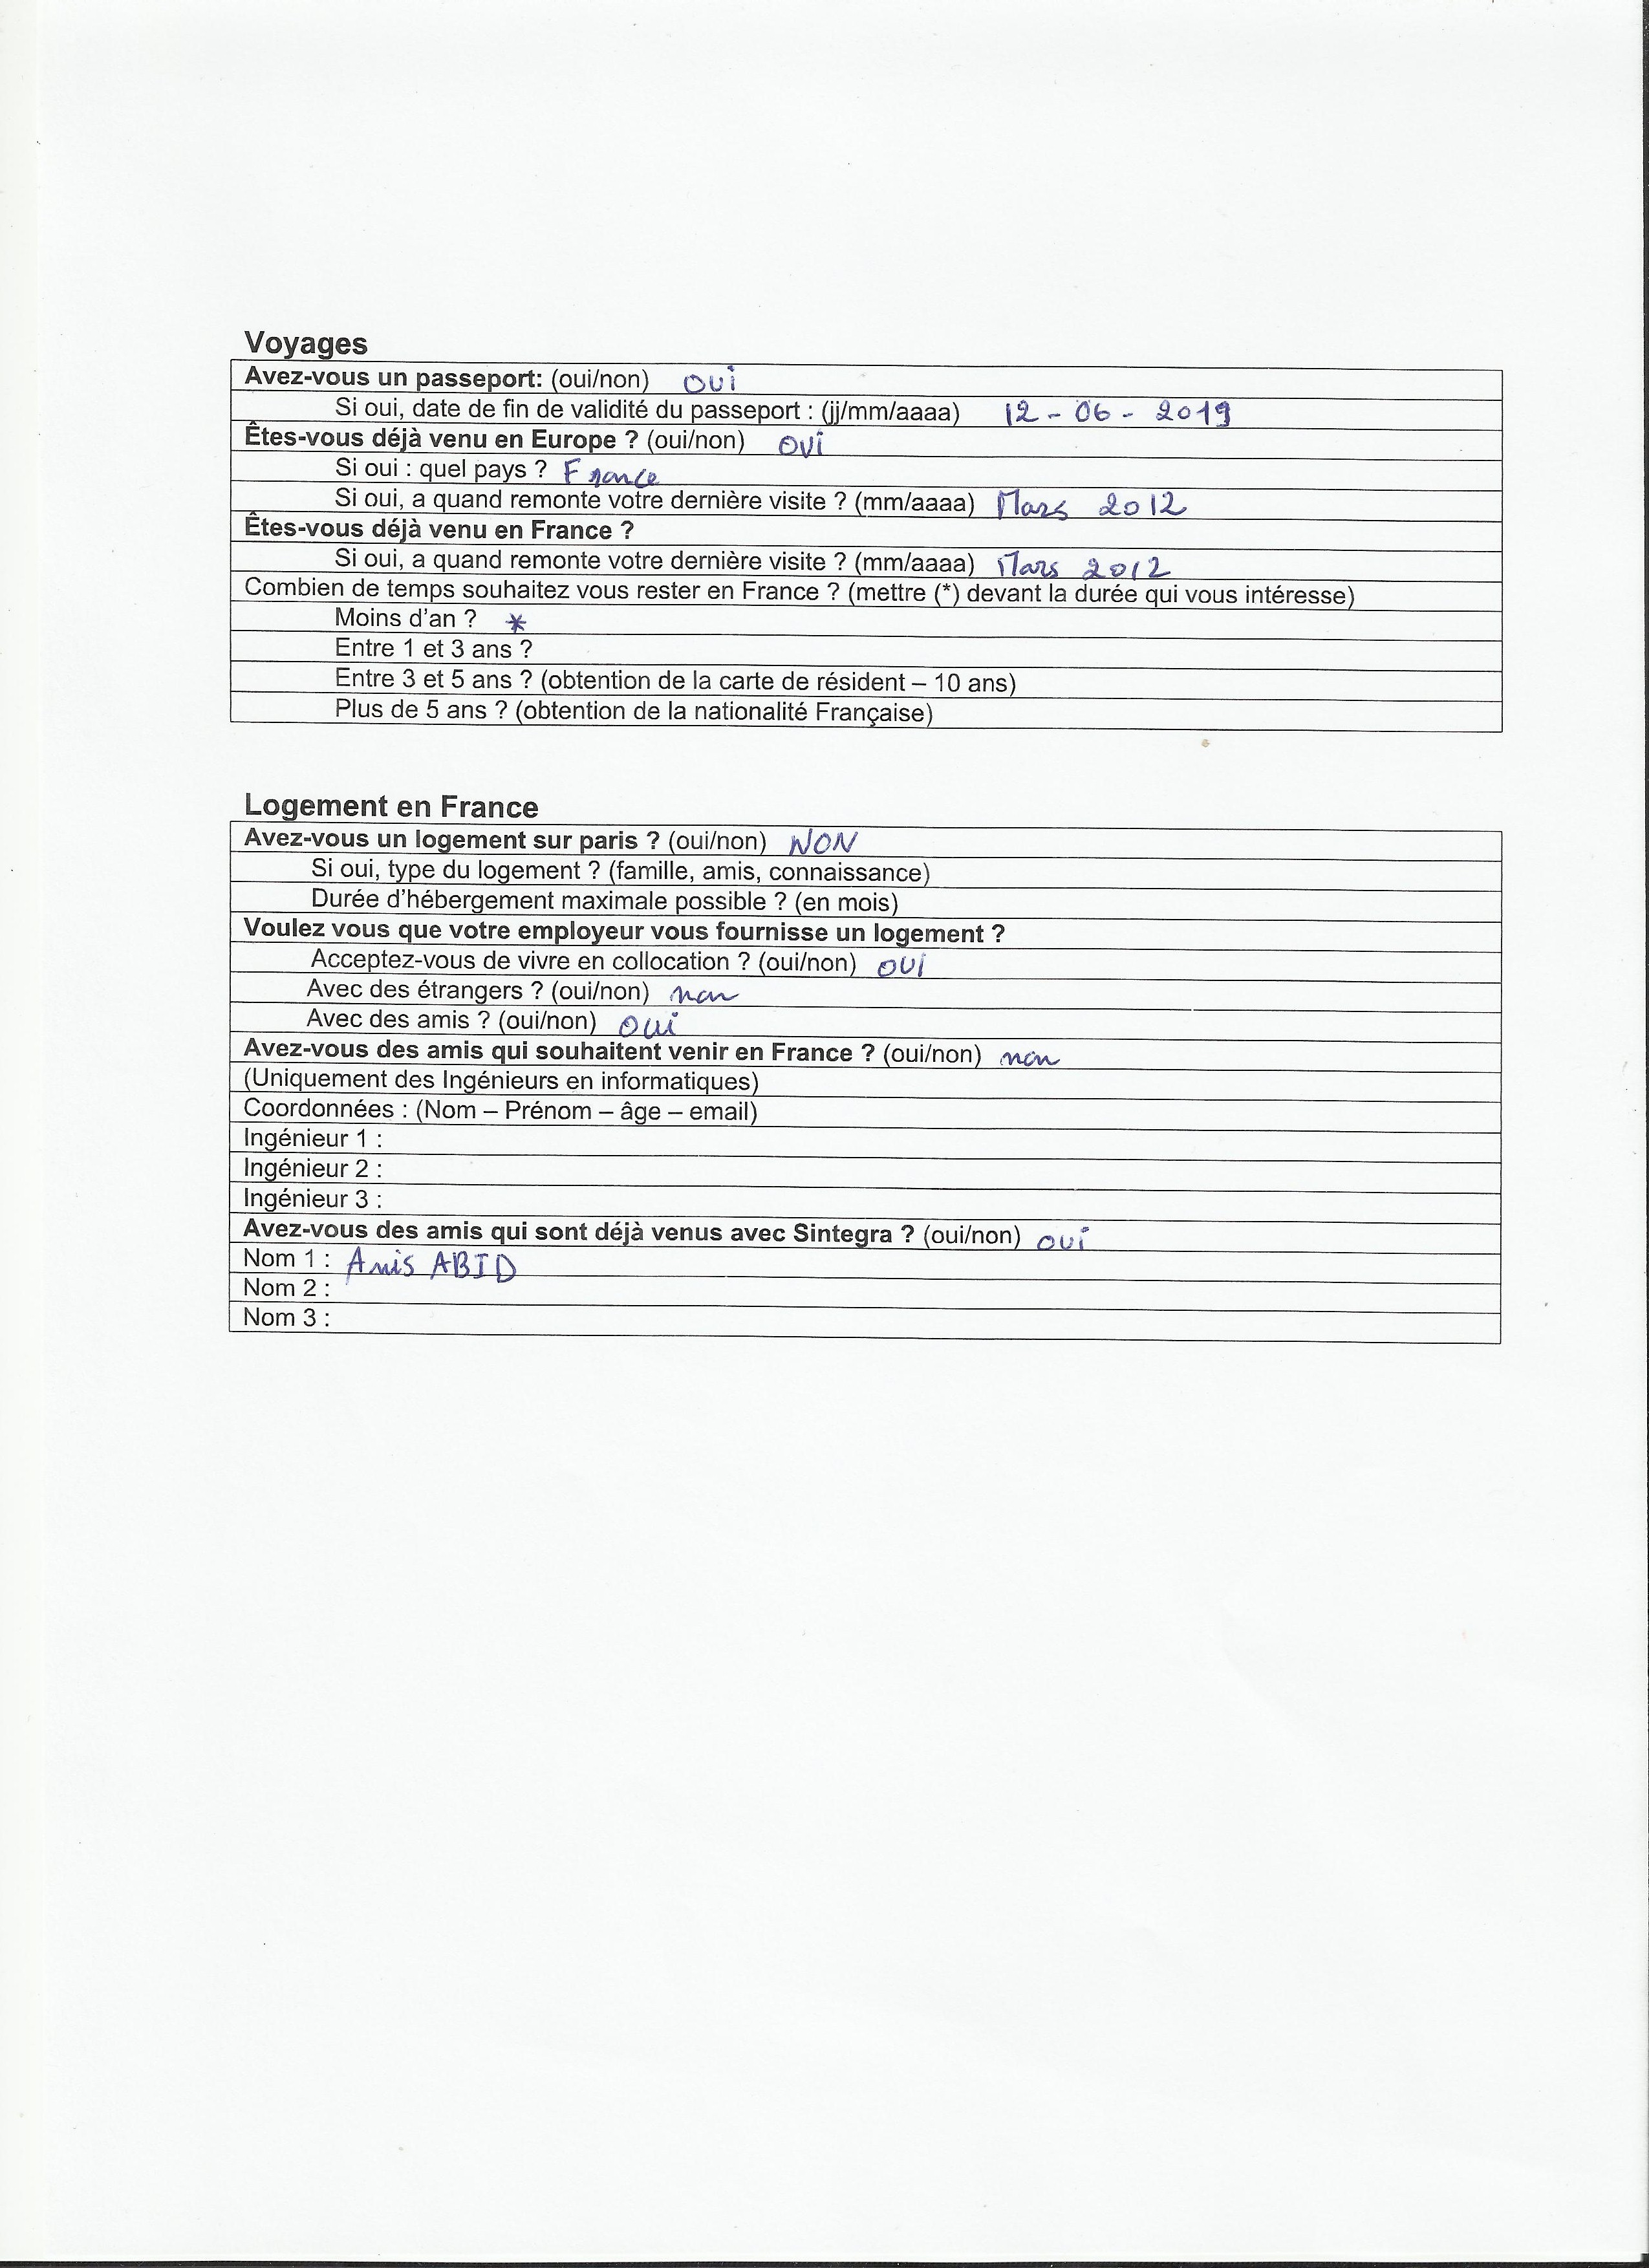 Voyages
Avez-vous un passeport: (oui/non) oui
Si oui, date de fin de validité du passeport : (jj/mm/aaaa) 12-06-2019
Êtes-vous déjà venu en Europe ? (oui/non) oui
Si oui : quel pays ? France
Si oui, a quand remonte votre dernière visite ? (mm/aaaa) Mars 2012
Êtes-vous déjà venu en France ?
Si oui, a quand remonte votre dernière visite ? (mm/aaaa) Mars 2012
Combien de temps souhaitez vous rester en France ? (mettre (*) devant la durée qui vous intéresse)
Moins d'an ? *
Entre 1 et 3 ans ?
Entre 3 et 5 ans ? (obtention de la carte de résident – 10 ans)
Plus de 5 ans ? (obtention de la nationalité Française)
Logement en France
Avez-vous un logement sur paris ? (oui/non) NON
Si oui, type du logement ? (famille, amis, connaissance)
Durée d'hébergement maximale possible ? (en mois)
Voulez vous que votre employeur vous fournisse un logement ?
Acceptez-vous de vivre en collocation ? (oui/non) oui
Avec des étrangers ? (oui/non) non
Avec des amis ? (oui/non) oui
Avez-vous des amis qui souhaitent venir en France ? (oui/non) non
(Uniquement des Ingénieurs en informatiques)
Coordonnées : (Nom – Prénom – âge – email)
Ingénieur 1 :
Ingénieur 2 :
Ingénieur 3 :
Avez-vous des amis qui sont déjà venus avec Sintegra ? (oui/non) oui
Nom 1 : Anis ABID
Nom 2 :
Nom 3 :